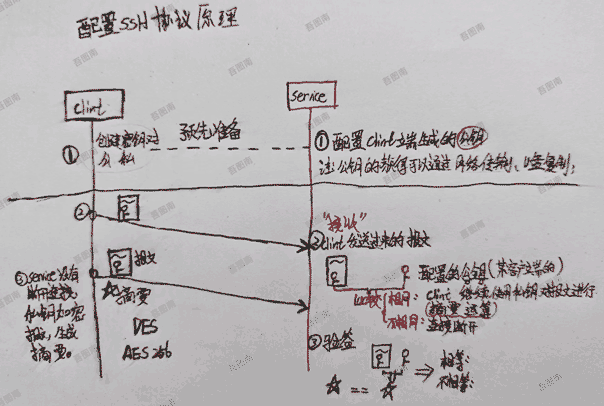 配置SSH协议原理
Clint
Service
① 创建密钥对
公 私
预先准备
① 配置Clint端生成的公钥
注:公钥的获得可以通过网络传输、U盘复制;
②
"接收"
② Clint发送过来的报文
报文
摘要
DES
AES 256
③ service没有
断开连接
私钥加密
报文,生成
摘要。
配置的公钥(来客户端的)
比较
相同: Clint 继续使用私钥对报文进行
摘要运算
不相同: 连接断开
③ 验签
== ⇒ 相等:
不相等: